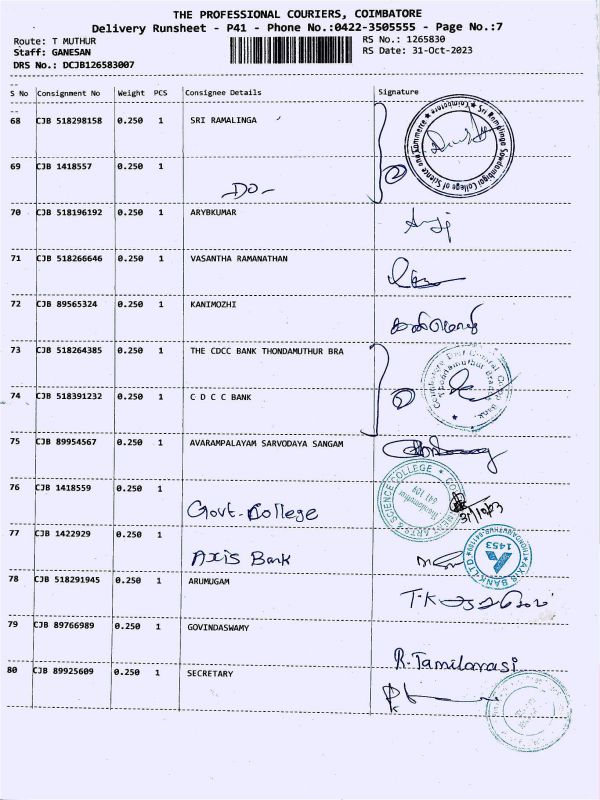 THE PROFESSIONAL COURIERS, COIMBATORE
Delivery Runsheet - P41 - Phone No.:0422-3505555 - Page No.:7
Route: T MUTHUR RS No.: 1265830
Staff: GANESAN RS Date: 31-Oct-2023
DRS No.: DCJB126583007
S No Consignment No Weight PCS Consignee Details Signature
68 CJB 518298158 0.250 1 SRI RAMALINGA
Sri Ramalinga Sowdambigai College of Science and Commerce ★ Coimbatore ★
69 CJB 1418557 0.250 1
-DO-
70 CJB 518196192 0.250 1 ARYBKUMAR
71 CJB 518266646 0.250 1 VASANTHA RAMANATHAN
72 CJB 89565324 0.250 1 KANIMOZHI
கனிமொழி
73 CJB 518264385 0.250 1 THE CDCC BANK THONDAMUTHUR BRA
74 CJB 518391232 0.250 1 C D C C BANK
75 CJB 89954567 0.250 1 AVARAMPALAYAM SARVODAYA SANGAM
76 CJB 1418559 0.250 1
Govt. College 31/10/23
77 CJB 1422929 0.250 1
Axis Bank
AXIS BANK LTD. 1453
78 CJB 518291945 0.250 1 ARUMUGAM
79 CJB 89766989 0.250 1 GOVINDASWAMY
R. Tamilarasi
80 CJB 89925609 0.250 1 SECRETARY